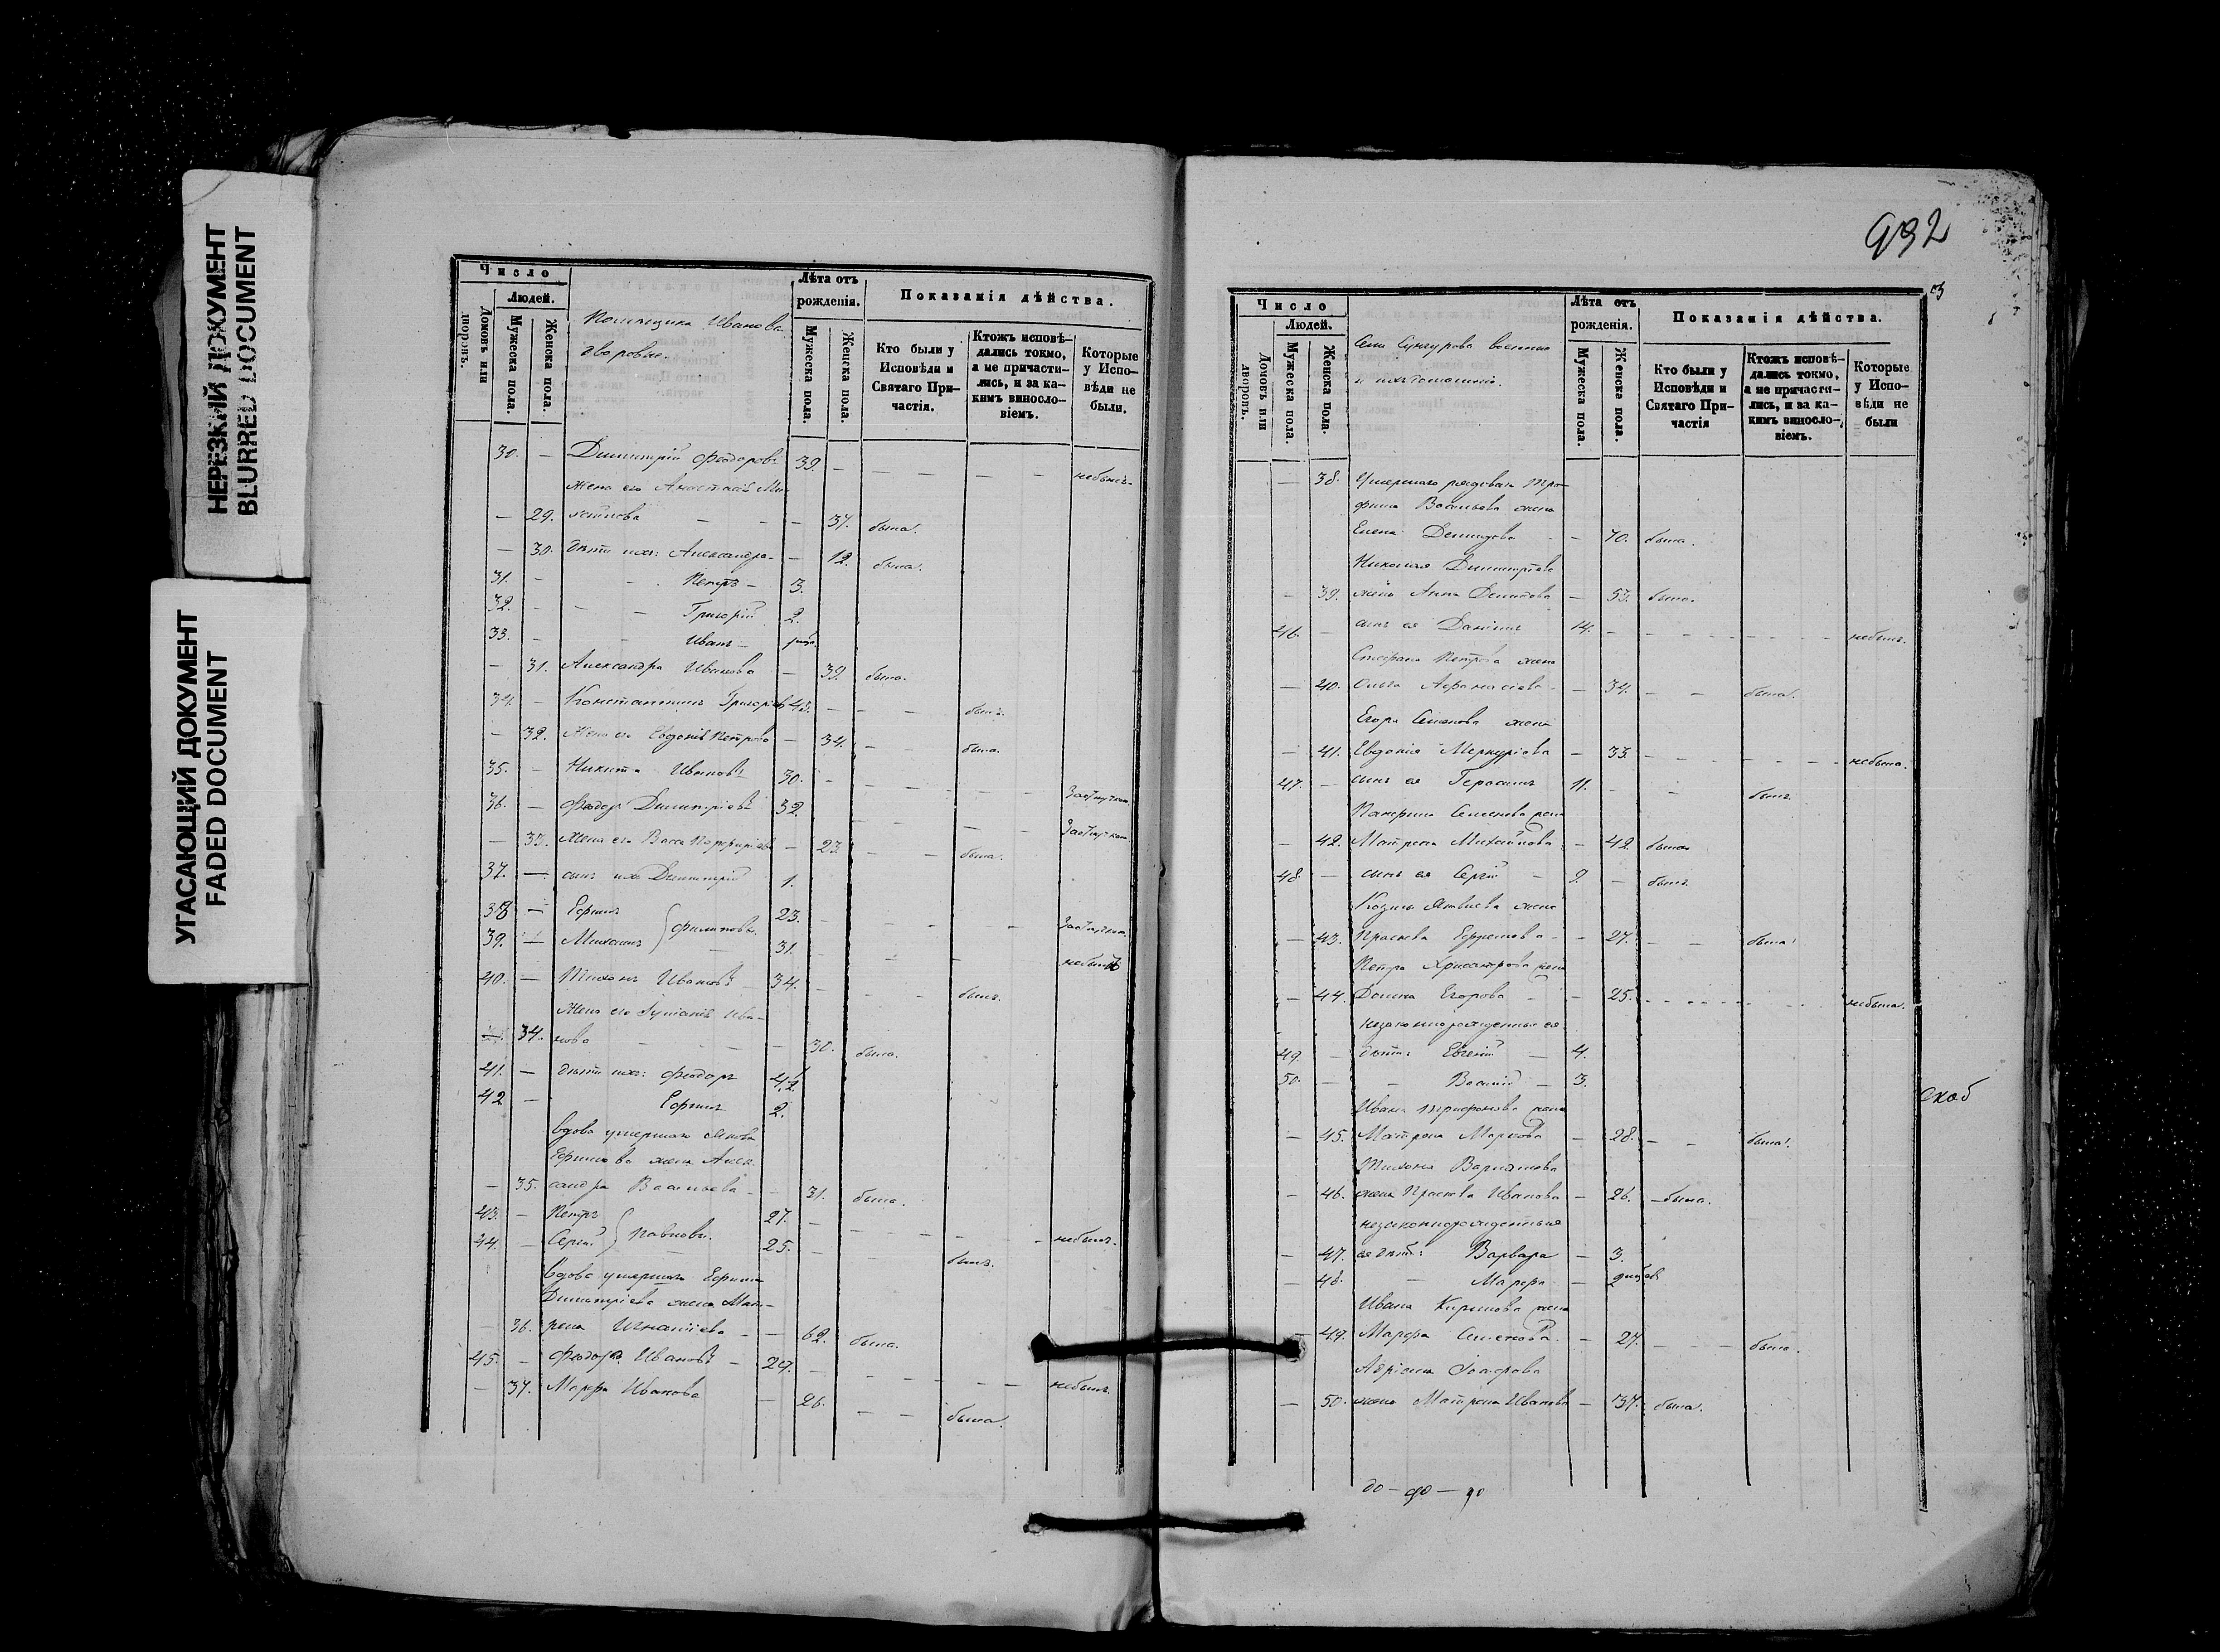 НЕРЕЗКИЙ ДОКУМЕНТ
BLURRED DOCUMENT
УГАСАЮЩИЙ ДОКУМЕНТ
FADED DOCUMENT
Число
Людей.
Домовъ или дворовъ.
Мужеска пола.
Женска пола.
Помѣщика Иванова
дворовые.
Лѣта отъ рожденія.
Мужеска пола.
Женска пола.
Показанія дѣйства.
Кто были у Исповѣди и Святаго Причастія.
Ктожъ исповѣдались токмо, а не причастились, и за какимъ винословіемъ.
Которые у Исповѣди не были.
30. — Димитрій Феодоровъ 39. — — — — небылъ.
жена его Анастасія Ми-
— 29. хайлова — — — 37. была.
— 30. дѣти ихъ: Александра — — 12. была.
31. — — Петръ — 3.
32. — — — Григорій 2.
33. — — Иванъ —
— 31. Александра Иванова — 39. была.
34. — Константинъ Григорьевъ 45. — — — былъ.
— 32. Жена его Евдокія Петрова — 34. — была.
35. — Никита Ивановъ 30. — — — —
36. — Феодоръ Димитріевъ 32. — — —
— 33. Жена его Васса Порфирьева — 23. — — была.
37. — сынъ ихъ Димитрій 1.
38 — Ефимъ 23. — — —
39. — Михаилъ } Филиповы. 31. — — небылъ
40. — Тихонъ Ивановъ 34. — — — былъ.
Жена его Іуліанія Ива-
34. нова — — — — 30. была.
41. — дѣти ихъ: Феодоръ 4.
42 — Ефимъ 2.
вдова умершаго Якова
Ефимова жена Алек-
— 35. сандра Васильева — 31. была.
43. — Петръ 27. — — — — небылъ.
44. — Сергій } Павловы. 25. — — былъ.
Вдова умершаго Ефима
Димитріева жена Мат-
— 36. рена Игнатіева — — 62. была.
45. — Феодоръ Ивановъ — 29. — — — — небылъ.
— 37. Марѳа Иванова — 26. — — была.
932
Число
Людей.
Домовъ или дворовъ.
Мужеска пола.
Женска пола.
Села Сунгурова военные
и ихъ домашніе.
Лѣта отъ рожденія.
Мужеска пола.
Женска пола.
Показанія дѣйства.
Кто были у Исповѣди и Святаго Причастія
Ктожъ исповѣдались токмо, а не причастились, и за какимъ винословіемъ.
Которые у Исповѣди не были
— 38. Умершаго рядоваго Тро-
фима Васильева жена
Елена Демидова — — 70. была.
Николая Димитріева
— 39. жена Анна Демидова — 53. была.
46. — сынъ ея Даніилъ 14. — — — — небылъ.
Стефана Петрова жена
— 40. Ольга Афанасіева — — 34. — — была.
Егора Семенова жена
— 41. Евдокія Меркуріева — 33. — — — — небыла.
47. — сынъ ея Герасимъ 11. — — былъ.
Семенова жена
— 42. Матрена Михайлова — 42 была
48. — сынъ ея Сергій — 9. — былъ.
Козмы Яковлева жена
— 43. Прасковья — — 27. — — была.
Петра Хрисанфова жена
— 44. Домна Егорова — — 25. — — — — небыла.
незаконнорожденные ея
49. — дѣти: Евгеній — 4.
50. — — Василій — 3.
Ивана Трифонова жена
— 45. Матрена Маркова — 28. — — была.
Тихона Варламова
— 46. жена Прасковья Иванова — 26. — была.
незаконнорожденные
— 47. ея дѣти: Варвара — 3.
— 48. — Марѳа —
Ивана Кирилова жена
— 49. Марѳа Семенова — — 27. — — — была.
Іосифова
— 50. жена Матрена Иванова — 37. была.